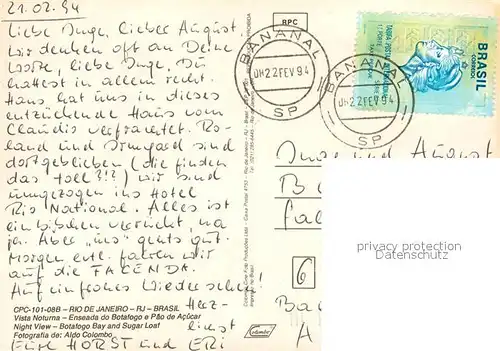 21.02.94
Liebe Inge, lieber August,
wir denken oft an Deine
Worte, liebe Inge. Du
hattest in allem recht.
Hans hat uns in dieses
entzückende Haus vom
Claudis verfrachtet. Ro-
land und Irmgard sind
dortgeblieben (die finden
das toll???) wir sind
umgezogen ins Hotel
Rio National. Alles ist
ein bißchen verrückt, na
ja. Aber "uns" gehts gut.
Morgen evtl. fahren wir
auf die FAZENDA.
Auf ein frohes Wiedersehen
Herz-
lichst
Eure HORST und ERI
CPC-101-08B – RIO DE JANEIRO – RJ – BRASIL
Vista Noturna – Enseada do Botafogo e Pão de Açúcar
Night View – Botafogo Bay and Sugar Loaf
Fotografia de: Aldo Colombo
RPC
BANANAL
22FEV94
SP
BANANAL
22FEV94
SP
BRASIL
CORREIO
Inge und August
6
privacy protection
by VDM GmbH